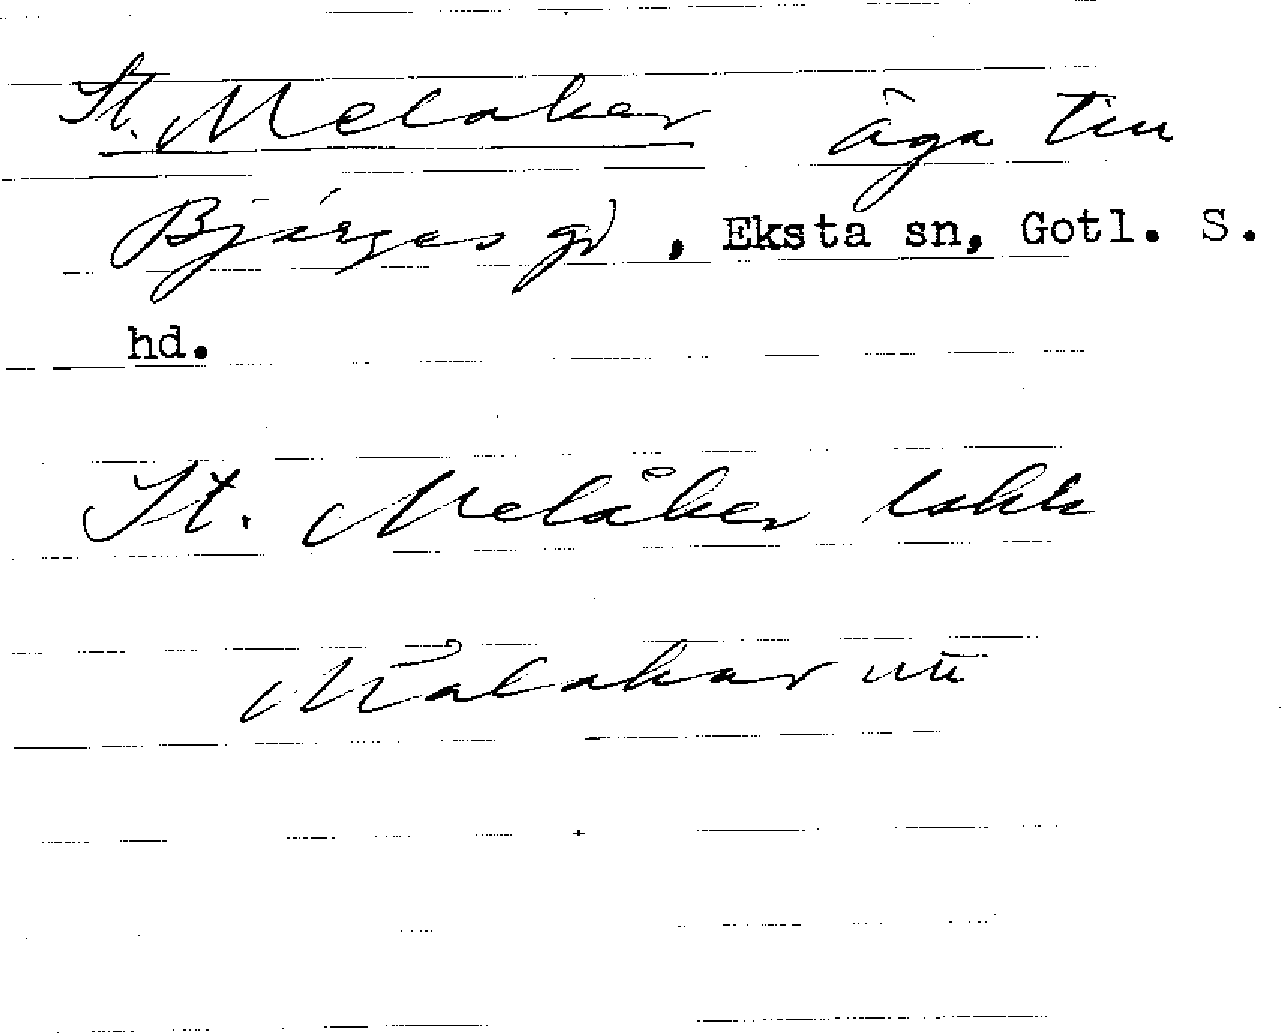 St. Melaker äga till
Bjärges gd, Eksta sn, Gotl. S.
hd.
St. Melåker lskk
Malakar